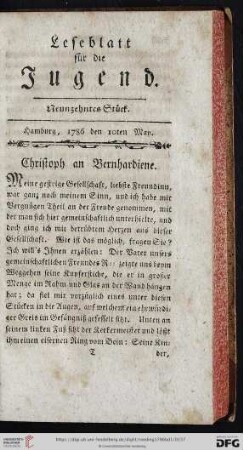 Leseblatt
für die
Jugend.
Neunzehntes Stück.
Hamburg, 1786 den 10ten May.
Christoph an Bernhardiene.
Meine gestrige Gesellschaft, liebste Freundinn,
war ganz nach meinem Sinn, und ich habe mit
Vergnügen Theil an der Freude genommen, mit
der man sich hier gemeinschaftlich unterhielte, und
doch ging ich mit betrübtem Herzen aus dieser
Gesellschaft. Wie ist das möglich, fragen Sie?
Ich will's Ihnen erzählen: Der Vater unsers
gemeinschaftlichen Freundes R-- zeigte uns beym
Weggehen seine Kupferstiche, die er in großer
Menge im Rahm und Glas an der Wand hangen
hat; da fiel mir vorzüglich eines unter diesen
Stücken in die Augen, auf welchem ein ehrwürdi-
ger Greis im Gefängniß gefesselt sitzt. Unten an
seinem linken Fuß sitzt der Kerkermeister und lößt
ihm einen eisernen Ring vom Bein: Seine Kin-
T der,